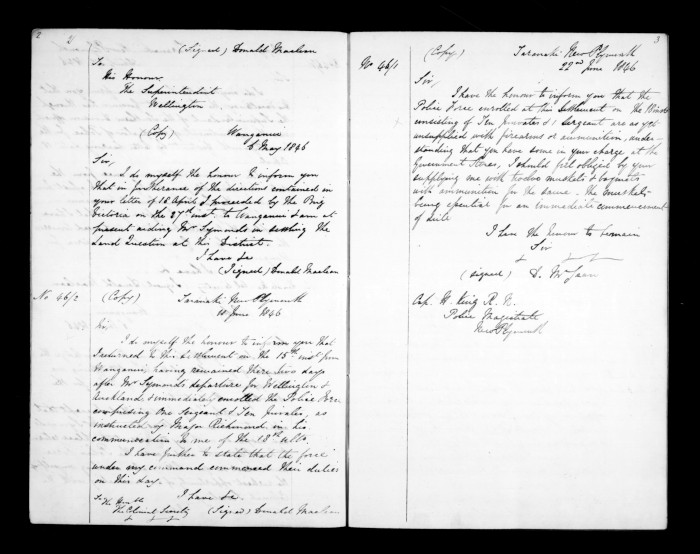 2
(Signed) Donald McLean
To
His Honour
The Superintendent
Wellington
(Copy) Wanganui
6 May 1846
Sir,
I do myself the honour to inform you
that in furtherance of the directions contained in
your letter of 16 April, I proceeded by the Brig
Victoria on the 27th inst. to Wanganui & am at
present aiding Mr Symonds in settling the
Land Question at this District.
I have &c
(Signed) Donald McLean
No 46/2 (Copy) Taranaki New Plymouth
June 1846
Sir,
I do myself the honour to inform you that
I returned to this Settlement on the 15th inst from
Wanganui, having remained there two days
after Mr Symonds departure for Wellington &
Auckland, & immediately enrolled the Police Force
comprising One Sergeant & Ten Privates, as
instructed by Major Richmond in his
communication to me of the 18th ulto.
I have further to state that the force
under my command commenced their duties
on this day.
I have &c
To The Honble
The Colonial Secretary (Signed) Donald McLean
3
No 46/1 (Copy) Taranaki New Plymouth
22nd June 1846
Sir,
I have the honour to inform you that the
Police Force enrolled at this Settlement on the
consisting of Ten Privates & 1 Sergeant are as yet
unsupplied with firearms or ammunition, under-
standing that you have some in your charge at the
Government Stores, I should feel obliged by your
supplying me with twelve muskets & bayonets
with ammunition for the same - the muskets
being essential for an immediate commencement
of drill
I have the honour to remain
Sir
(signed) D. McLean
Cap. H. King R. N.
Police Magistrate
New Plymouth